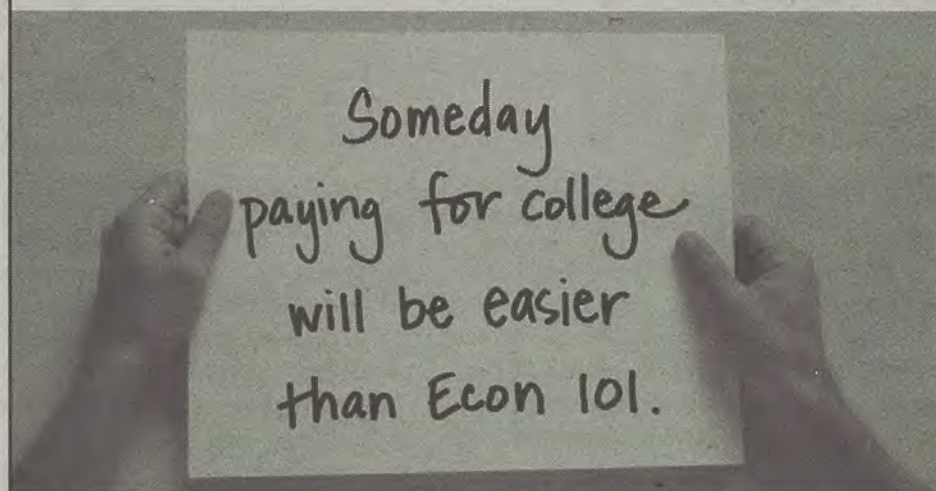 Someday
paying for college
will be easier
than Econ 101.